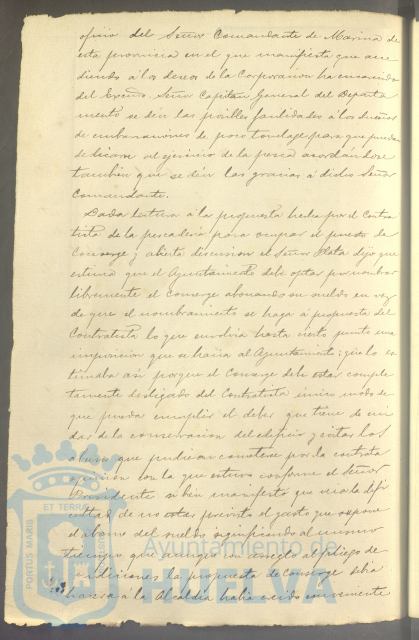 oficio del Señor Comandante de Marina de
esta provincia en el que manifiesta que acce
diendo á los deseos de la Corporacion ha
del Excmo. Señor Capitan General del Departa
mento se den las posibles facilidades á los dueños
de embarcaciones de poco tonelaje, para que puedan
dedicarse al ejercicio de la pesca acordándose
tambien que se den las gracias á dicho Señor
Comandante.
Dada lectura á la propuesta hecha por el Contra
tista de la pescadería para ocupar el puesto de
Conserge y abierta discusion el Señor Plata dijo que
estima que el Ayuntamiento debe optar por nombrar
libremente el Conserge abonando su sueldo en vez
de que el nombramiento se haga á propuesta del
Contratista lo que envolvia hasta cierto punto una
imposicion que se hacia al Ayuntamiento; que lo es
timaba asi porque el Conserge debe estar comple
tamente desligado del Contratista unico modo de
que pueda cumplir el deber que tiene de cui
dar de la conservacion del edificio y evitar los
abusos que pudieran cometerse por la contrata
opinion con la que estuvo conforme el Señor
Presidente si bien manifestó que veia la difi
cultad de no estar previsto el gasto que supone
el abono del sueldo significando al mismo
tiempo que aunque con arreglo al pliego de
condiciones la propuesta de Conserge debia
hacerse á la Alcaldia habia creido conveniente
PORTUS MARIS
ET TERRAE
Ayuntamiento de
HUELVA